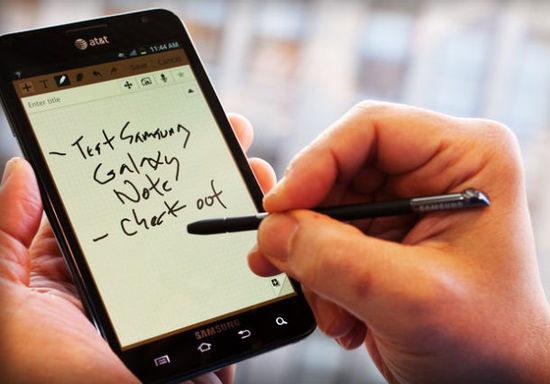 at&t
11:44 AM
Save Cancel
Enter title
- Test Samsung
Galaxy
Note
- Check out
SAMSUNG
SAMSUNG